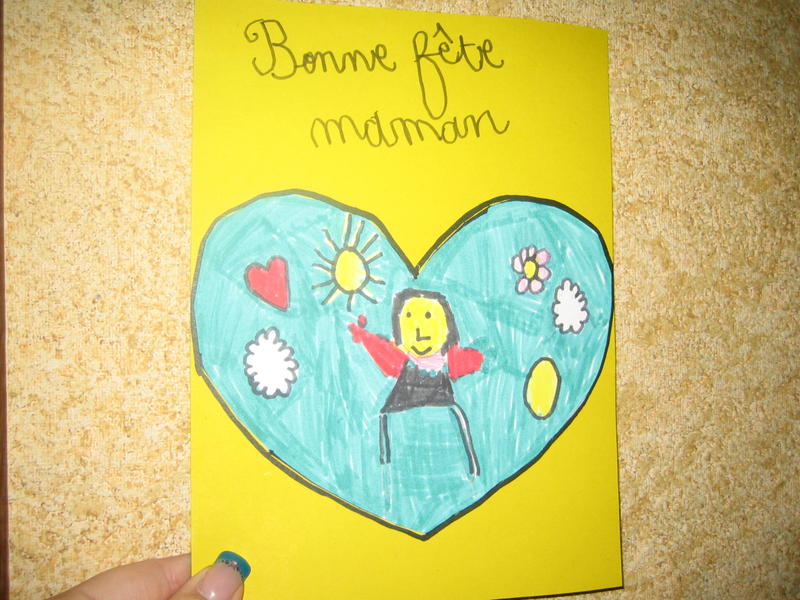 Bonne fête
maman